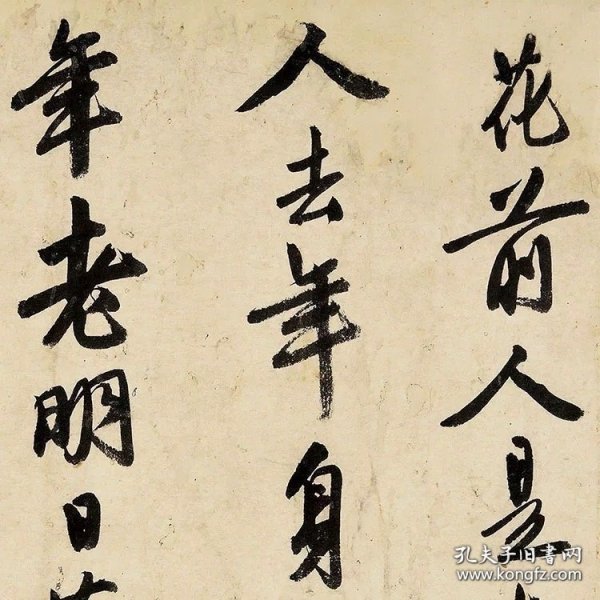 花前人是
人去年身
年老明日
孔夫子旧书网
www.kongfz.com